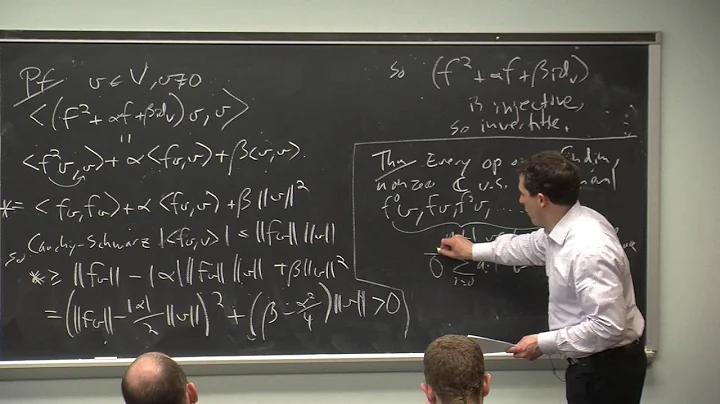 Pf v ∈ V, v≠0
<(f² + αf + βid_v) v, v>
"
<f²v, v> + α<fv, v> + β<v, v>.
* = <fv, fv> + α<fv, v> + β||v||²
so Cauchy-Schwarz |<fv, v>| ≤ ||fv|| ||v||
* ≥ ||fv|| - |α| ||fv|| ||v|| + β||v||²
= (||fv|| - |α|/2 ||v||)² + (β - α²/4) ||v|| > 0
so (f² + αf + βid_v)
is injective,
so invertible.
Thm Every op
nonzero ℂ v.s.
f⁰v, fv, f²v, ...
0
i=0